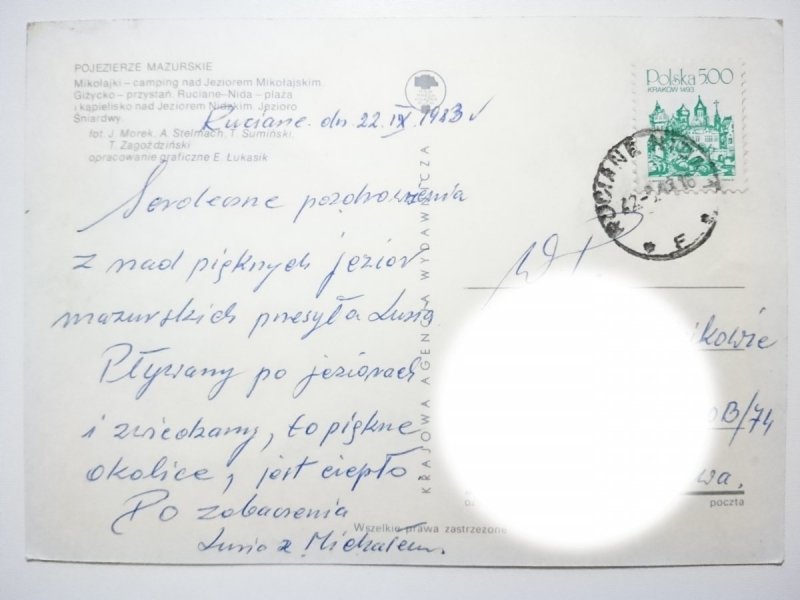 POJEZIERZE MAZURSKIE
Mikołajki – camping nad Jeziorem Mikołajskim.
Giżycko – przystań. Ruciane-Nida – plaża
i kąpielisko nad Jeziorem Nidzkim. Jezioro
Śniardwy.
fot. J. Morek, A. Stelmach, T. Sumiński,
T. Zagoździński
opracowanie graficzne E. Łukasik
Ruciane dn 22.IX 1983
Serdeczne pozdrowienia
z nad pięknych jezior
mazurskich przesyła Lusia
Pływamy po jeziorach
i zwiedzamy, to piękne
okolice, jest ciepło
Po zobaczenia
Lusia z Michałem
KRAJOWA AGENCJA WYDAWNICZA
Wszelkie prawa zastrzeżone
Polska 5,00
KRAKÓW 1493
RUCIANE
F
ikowie
0B/74
wa.
poczta